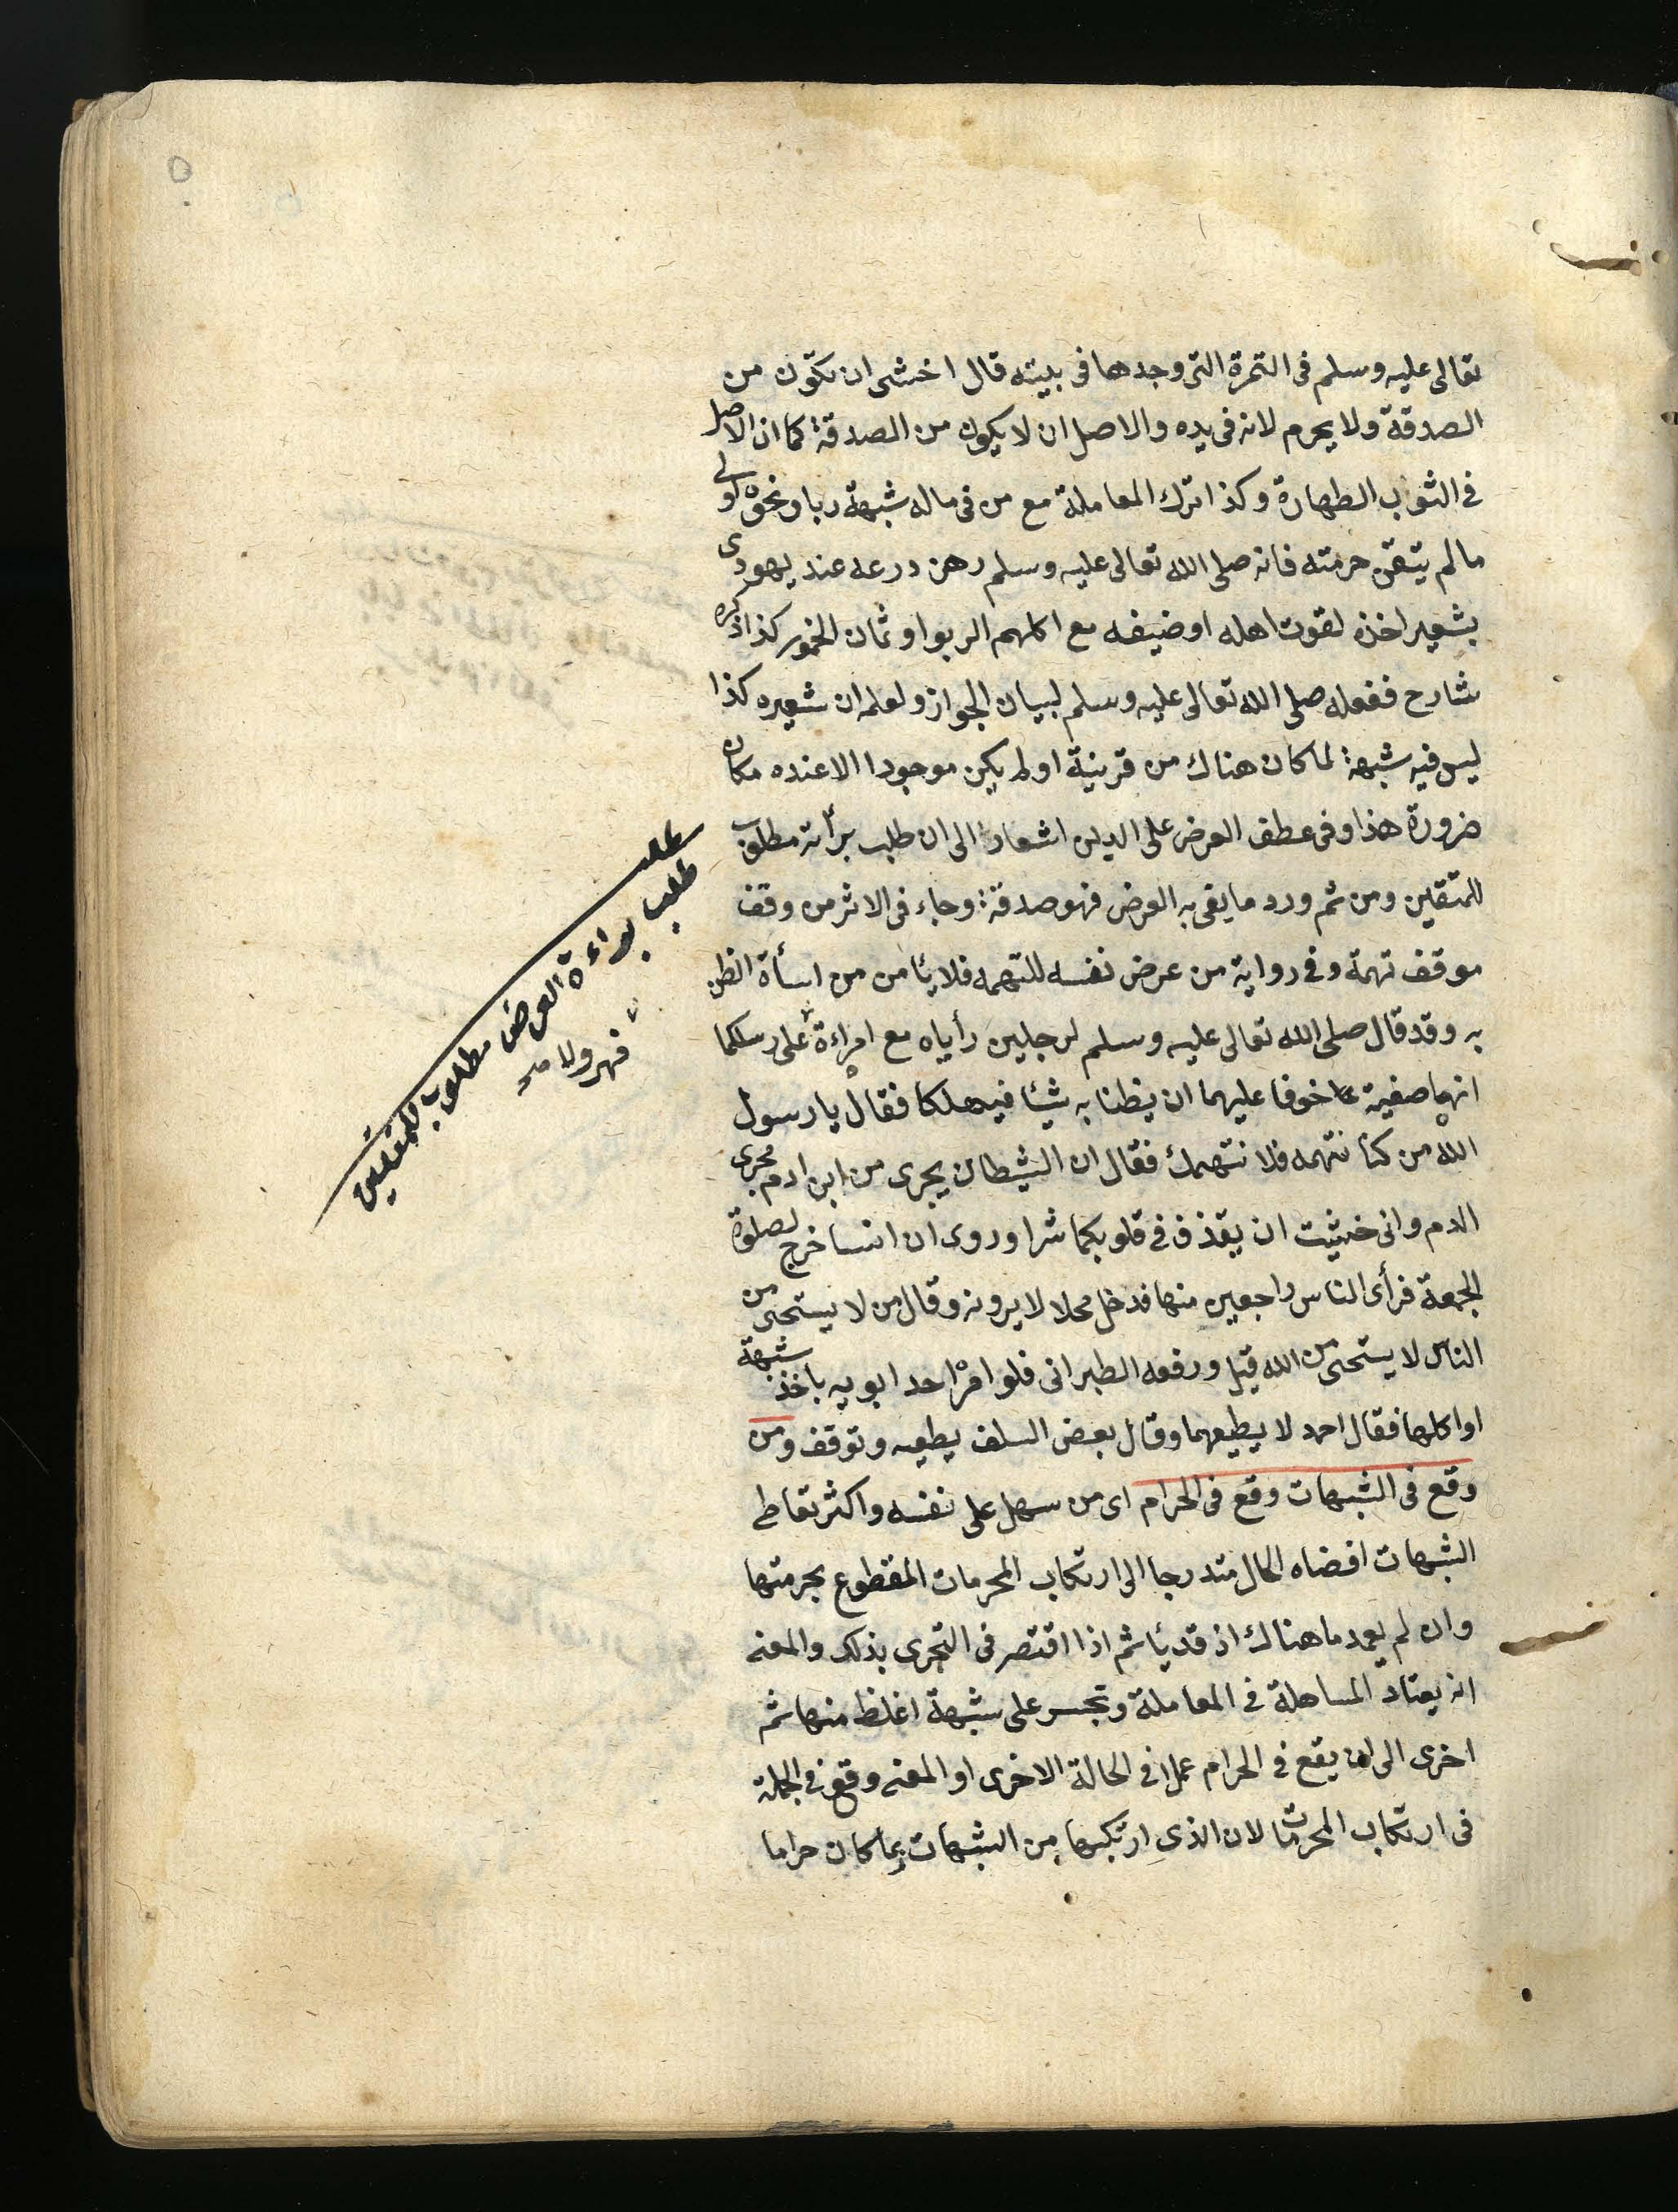 تعالى عليه وسلم فى التمرة التى وجدها فى بيته قال اخشى ان تكون من
الصدقة ولا يحرم لانه فى يده والاصل ان لا يكون من الصدقة كما ان الاصل
فى الثوب الطهارة وكذا ترك المعاملة مع من فى ماله شبهة ربا ونحوه اولى
مالم يتيقن حرمته فانه صلى الله تعالى عليه وسلم رهن درعه عند يهودى
بشعير اخذه لقوت اهله او ضيفه مع اكلهم الربوا وثمان الخمور كذا ذكره
شارح ففعله صلى الله تعالى عليه وسلم لبيان الجواز ولعله ان شعيره كذا
ليس فيه شبهة لما كان هناك من قرينة اولم يكن موجودا الا عنده مكان
ضرورة هذا وفى عطف العرض على الدين اشعار الى ان طلب برأته مطلوب
للمتقين ومن ثم ورد ما يقى به العرض فهو صدقة وجاء فى الاثر من وقف
موقف تهمة وفى رواية من عرض نفسه للتهمه فلا يأمن من اسأة الظن
به وقد قال صلى الله تعالى عليه وسلم لرجلين رأياه مع امراءة على رسلكما
انها صفية خوفا عليهما ان يظنا به شيئا فيهلكا فقال يا رسول
الله من كنا نتهمه فلا نتهمك فقال ان الشيطان يجرى من ابن ادم مجرى
الدم وانى خشيت ان يقذف فى قلوبكما شرا وروى ان انسا خرج لصلوة
الجمعة فرأى الناس راجعين منها فدخل محلا لا يرونه وقال من لا يستحى من
الناس لا يستحى من الله قيل ورفعه الطبرانى فلو امره احد ابويه باخذ شبهة
او اكلها فقال احمد لا يطيعهما وقال بعض السلف يطيعه وتوقف ومن
وقع فى الشبهات وقع فى الحرام اى من سهل على نفسه واكثر تعاطى
الشبهات افضاه الحال متدرجا الى ارتكاب المحرمات المقطوع بحرمتها
وان لم يعمد ما هناك اذ قد يأثم اذا اقتصر فى التحرى بذلك والمعنى
انه يعتاد المساهلة فى المعاملة وتجسر على شبهة اغلظ منها ثم
اخرى الى ان يقع فى الحرام عملا فى الحالة الاخرى او المعنى وقع فى الجملة
فى ارتكاب المحرمات لان الذى ارتكبها من الشبهات بما كان حراما
مطلب
طلب براءة العرض مطلوب للمتقين